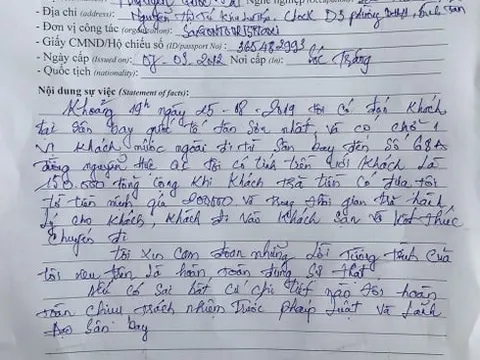 - Địa chỉ (address): Nguyễn Thị Tú Khu phố 2, Clock D3 phòng
- Đơn vị công tác (organization): SAIGONTOURIST
- Giấy CMND/Hộ chiếu số (ID/passport No): 365482993
- Ngày cấp (Issued on): 07-03-2012 Nơi cấp (In): Sóc Trăng
- Quốc tịch (nationality):
Nội dung sự việc (Statement of facts):
Khoảng 19h ngày 25-08-2019 tôi có đón khách
tại sân bay quốc tế tân Sơn nhất và có chở 1
vị khách nước ngoài đi từ Sân bay đến Số 68A
đường nguyễn Huệ Q1 tôi có tính tiền với khách là
150.000 tổng cộng khi khách trả tiền có đưa tôi
tờ tiền mệnh giá 200000 và trong thời gian trả hành
lý cho khách, khách đi vào khách sạn và kết thúc
chuyến đi
tôi xin cam đoan những lời tường trình của
tôi nêu trên là hoàn toàn đúng sự thật
Nếu có sai bất cứ chi tiết nào tôi hoàn
toàn chịu trách nhiệm trước pháp luật và lãnh
đạo sân bay